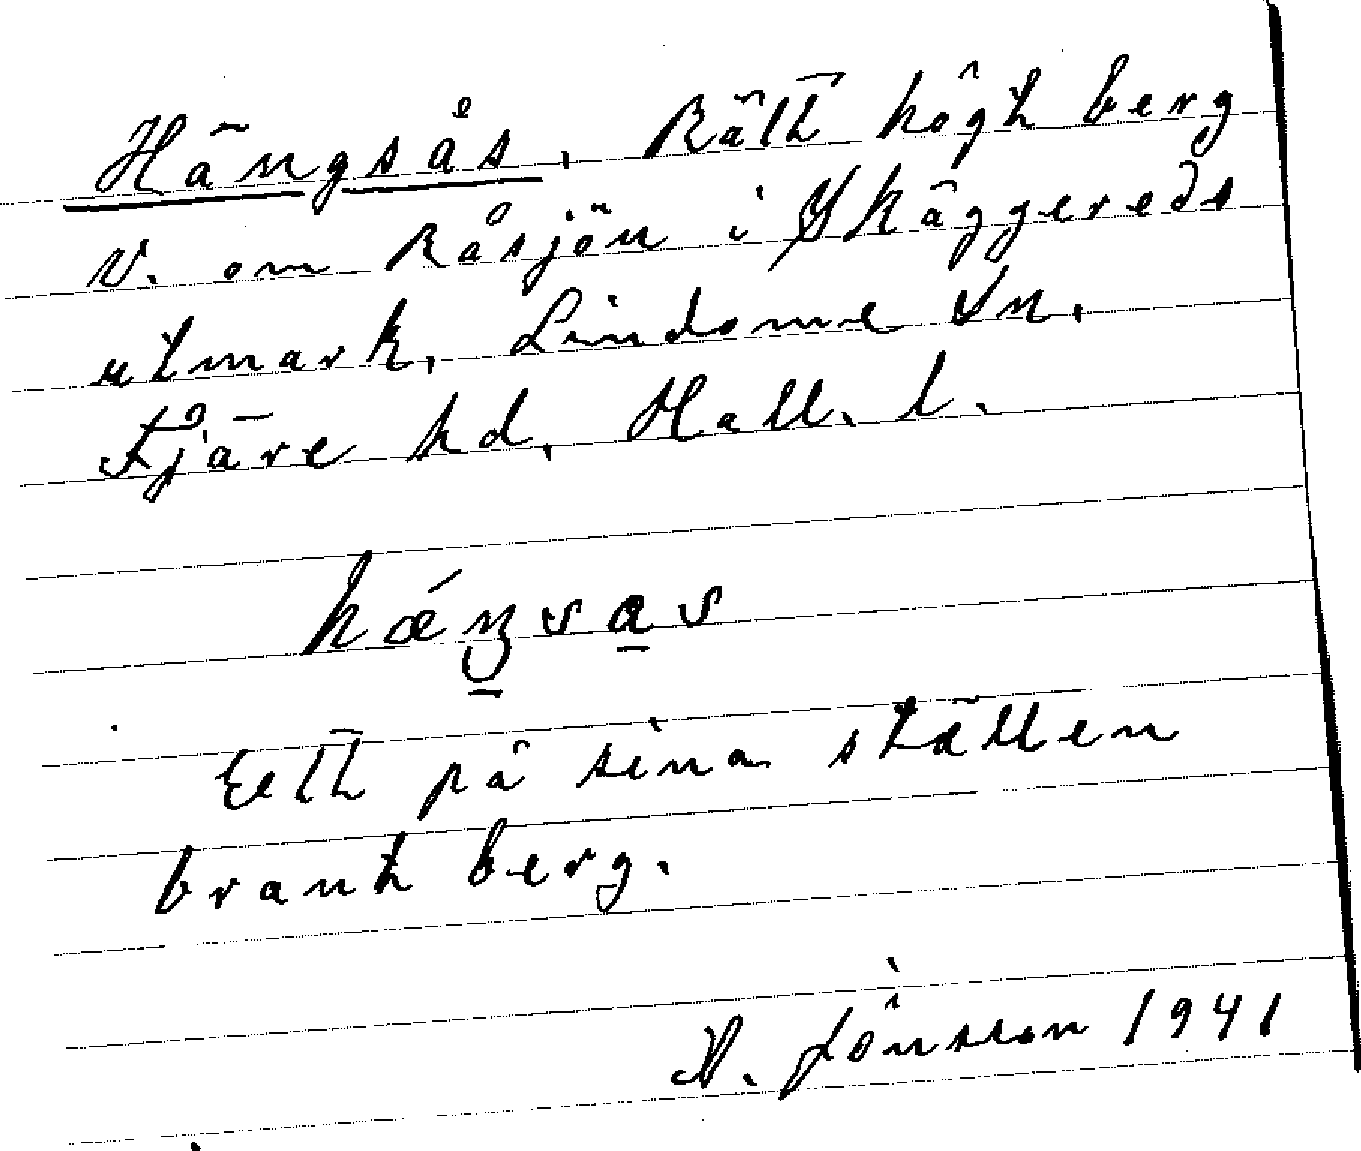 Hängsås, Rätt högt berg
V. om Råsjön i Skäggereds
utmark, Lindome sn,
Fjäre hd, Hall. l.
hǽŋsa̠s
Ett på sina ställen
brant berg.
N. Jönsson 1941